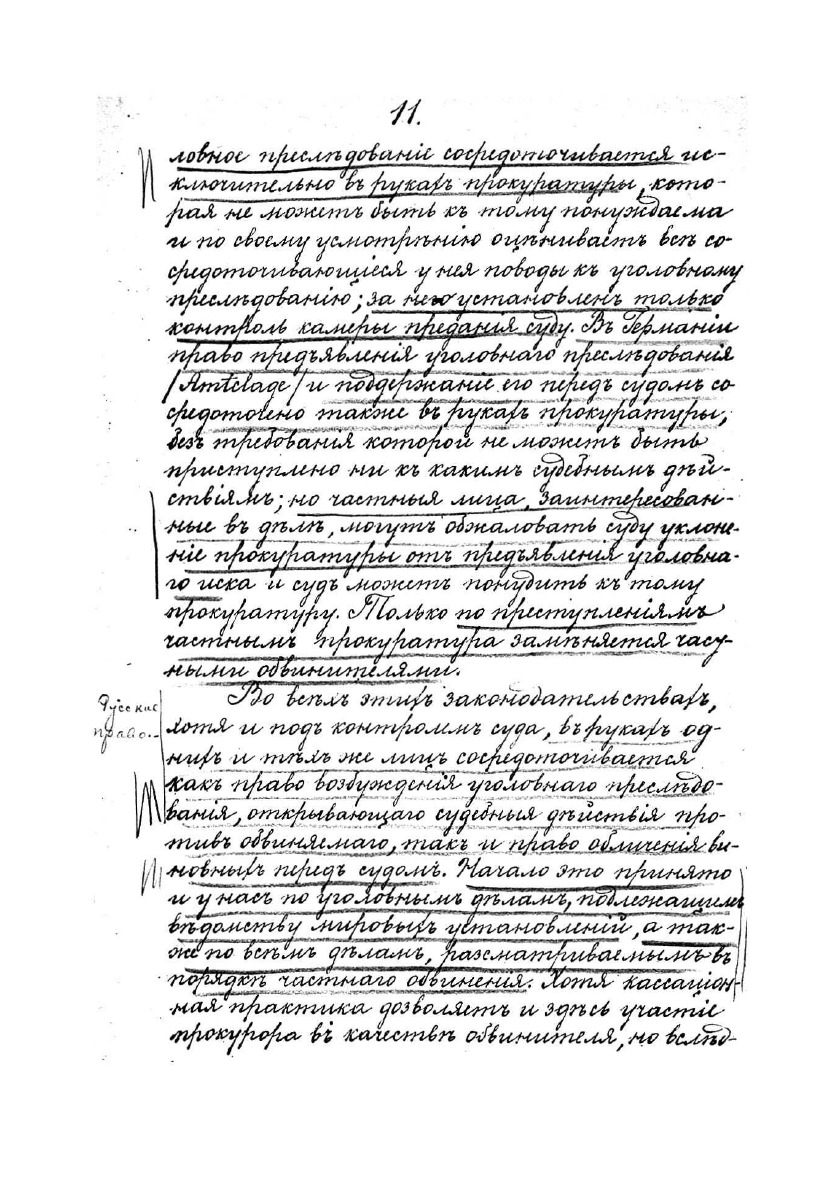 11.
ловное преслѣдованіе сосредоточивается ис-
ключительно въ рукахъ прокуратуры, кото-
рая не можетъ быть къ тому понуждаема
и по своему усмотрѣнію оцѣниваетъ всѣ со-
средоточивающіеся у нея поводы къ уголовному
преслѣдованію; за нею установленъ только
контроль камеры преданія суду. Въ Германіи
право предъявленія уголовнаго преслѣдованія
/Amtclage/ и поддержаніе его передъ судомъ со-
средоточено также въ рукахъ прокуратуры,
безъ требованія которой не можетъ быть
приступлено ни къ какимъ судебнымъ дѣй-
ствіямъ; но частныя лица, заинтересован-
ные въ дѣлѣ, могутъ обжаловать суду уклоне-
ніе прокуратуры отъ предъявленія уголовна-
го иска и судъ можетъ понудить къ тому
прокуратуру. Только по преступленіямъ
частнымъ прокуратура замѣняется част-
ными обвинителями.
Русское
право.
Во всѣхъ этихъ законодательствахъ,
хотя и подъ контролемъ суда, въ рукахъ од-
нихъ и тѣхъ же лицъ сосредоточивается
какъ право возбужденія уголовнаго преслѣдо-
ванія, открывающаго судебныя дѣйствія про-
тивъ обвиняемаго, такъ и право обличенія ви-
новныхъ передъ судомъ. Начало это принято
и у насъ по уголовнымъ дѣламъ, подлежащимъ
вѣдомству мировыхъ установленій, а так-
же по всѣмъ дѣламъ, разсматриваемымъ въ
порядкѣ частнаго обвиненія. Хотя кассаціон-
ная практика дозволяетъ и здѣсь участіе
прокурора въ качествѣ обвинителя, но вслѣд-